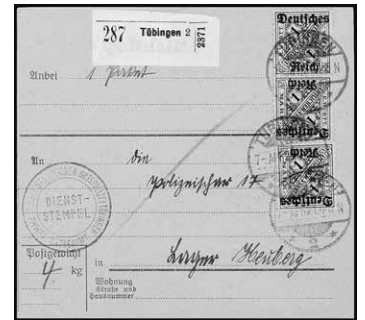 287 Tübingen 2 2371
Deutsches
Reich
Reich
Deutsches
Reich
Deutsches
Anbei 1 Paket
An die
Polizeischar 17
DIENST-
STEMPEL
Postgewicht
4 kg
in Lager Heuberg
Wohnung
Straße und
Hausnummer